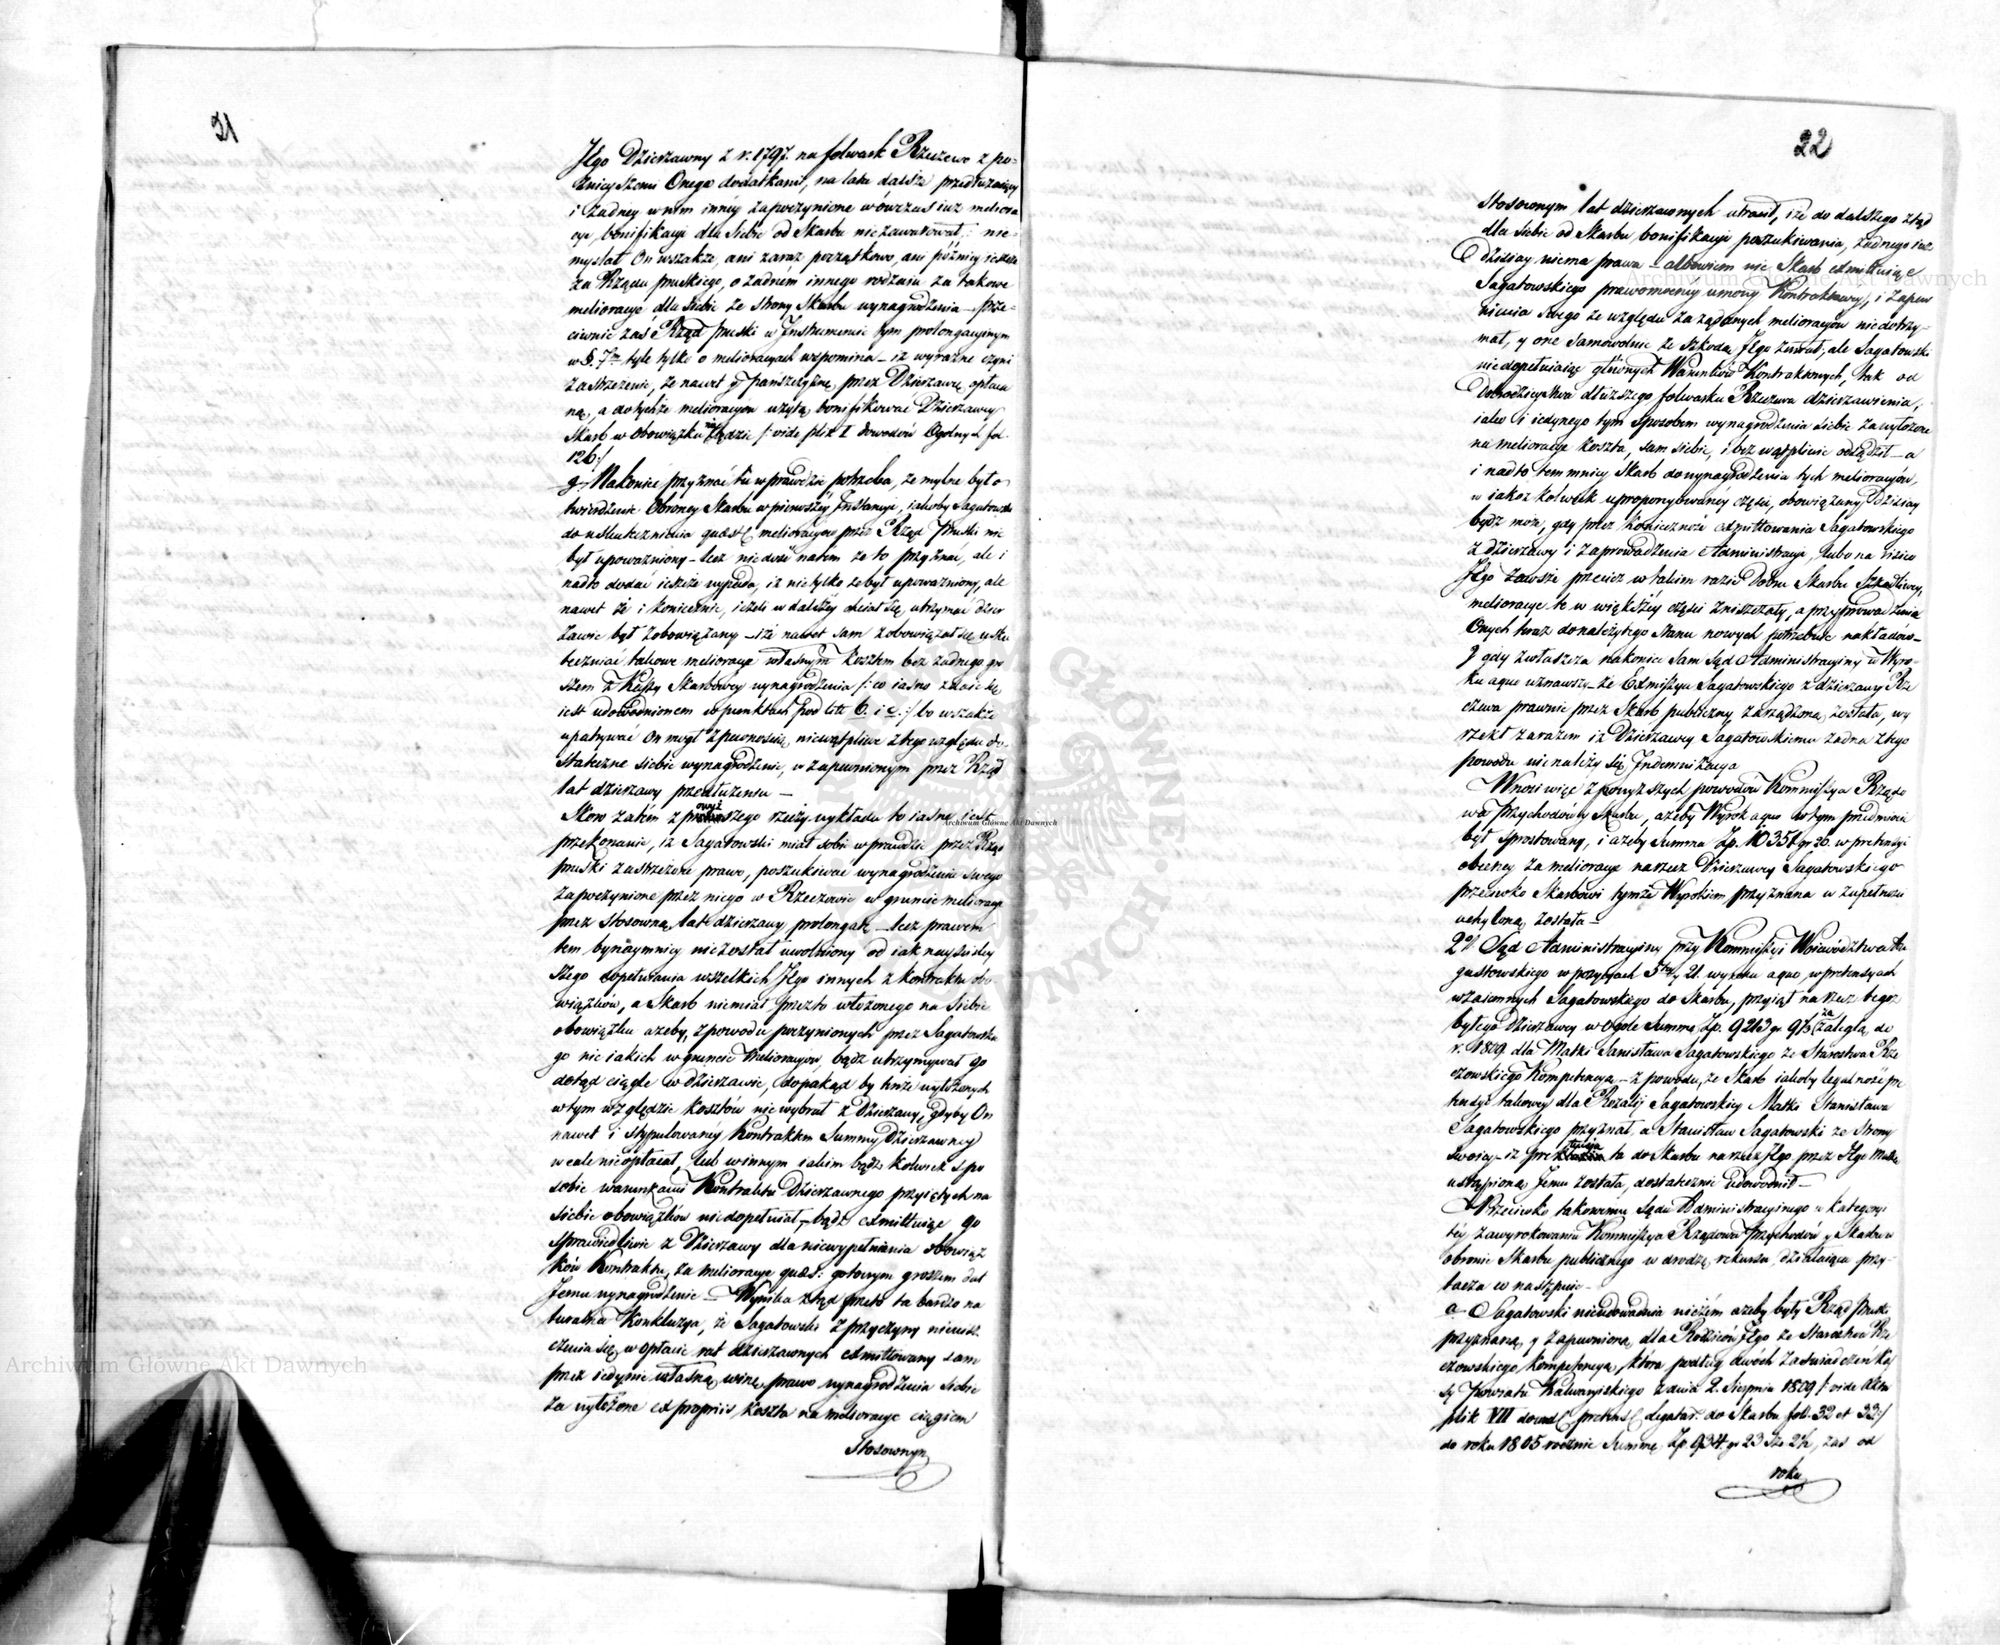 21
Jego Dzierżawny z r. 1797. na folwark Rzeczewo z po-
źnieyszemi Onego dodatkami, na lata dalsze przedłużaiący
i żadney w nim inney zapoczynione wówczas iuż meliora
cye, bonifikacyi dla siebie od Skarbu nie zawarował; nie-
myslał On wszakże, ani zaraz początkowo, ani późniey ieszcze
za Rządu pruskiego, o żadnem innego rodzaiu za takowe
melioracye dla siebie ze strony Skarbu wynagrodzenia – prze-
ciwnie zaś Rząd pruski w Instrumencie tym prolongacyinym
w §. 7m tyle tylko o melioracyach wspomina – iż wyraźne czyni
zastrzeżenie, że nawet y pańszczyznę przez Dzierzawcę opłaca
ną, a do tychże melioracyów użytą, bonifikować Dzierzawcy
Skarb w obowiązku nie będzie /: vide plik I dowodów Ogolnych fol.
126:/
g. Nakoniec przyznać tu wprawdzie potrzeba, że mylne było
twierdzenie Obrońcy Skarbu w pierwszey Instancyi, iakoby Sagatowski
do uskutecznienia quaest. melioracyow przez Rząd Pruski nie
był upoważniony – lecz nie dość natem że to przyznać, ale i
nadto dodać ieszcze wypada, iż nie tylko że był upoważniony, ale
nawet że i koniecznie, ieżeli w dalszéy chciał się utrzymać dzier
żawie był zobowiązany – iże nawet sam zobowiązał się usku
teczniać takowe melioracye własnym kosztem bez żadnego gro
szem z Kassy Skarbowey wynagrodzenia /: co iasno zdaie się
iest udowodnionem w punktach pod lit: b. i c. :/ bo wszakże
upatrywać On mógł z pewnością niewątpliwe z tego względu do-
stateczne siebie wynagrodzenie, w zapewnionym przez Rząd
lat dzierzawy przedłużeniu –
Skoro zatém z powyższego rzeczy wykładu to iasne iest
przekonanie, iż Sagatowski miał sobie wprawdzie przez Rząd
pruski zastrzeżone prawo, poszukiwać wynagrodzenia swego
zapoczynione przez niego w Rzeczewie w gruncie melioracye
przez stosowną lat dzierżawy prolongatę – lecz prawem
tem bynaymniey nie został uwolniony od iak nayściśley
szego dopełniania wszelkich Jego innych z kontraktu obo-
wiązków, a Skarb niemiał przezto włożonego na siebie
obowiązku ażeby, z powodu poczynionych przez Sagatowskie
go nieiakich w gruncie Melioracyów, bądź utrzymywał go
dotąd ciągle w dzierżawie, dopokąd by tenże wyłożonych
w tym względzie kosztów nie wybrał z dzierżawy, gdyby On
nawet i stypulowanéy Kontraktem Summy Dzierżawney
wcale nieopłacał, lub winnym iakim bądź kolwiek spo
sobie warunkami Kontraktu Dzierzawnego przyiętych na
siebie obowiązków niedopełniał – bądź exmittuiąc go
sprawiedliwie z Dzierżawy dla niewypełniania obowiąz
ków Kontraktu, za melioracye quaes: gotowym groszem dał
Jemu wynagrodzenie – Wynika ztąd przeto ta bardzo na
turalna Konkluzya, że Sagatowski z przyczyny nieuisz
czenia się w opłacie rat dzierzawnych exmittowany sam
przez iedynie własną winę, prawo wynagrodzenia siebie
za wyłożone ex propriis koszta na melioracye ciągiem
Stosownym
22
stosownym lat dzierzawnych utracił, i że do dalszego ztąd
dla siebie od Skarbu bonifikacyi poszukiwania, żadnego iuż
dzisiay niema prawa – albowiem nie Skarb exmittuiąc
Sagatowskiego prawomocney umowy Kontraktowey, i zapew
nienia swego ze względu zarządzanych melioracyów niedotrzy-
mał, y one samowolnie ze szkodą Jego zerwał; ale Sagatowski
niedopełniaiąc głównych Warunków Kontraktowych, tak od
dobrodzieystwa dłuższego folwarku Rzeczewa dzierżawienia,
iako i iedynego tym sposobem wynagrodzenia siebie za wyłożone
na melioracye koszta, sam siebie, i bez wątpienie odsądził – a
i nadto tem mniey Skarb do wynagrodzenia tych melioracyów,
w iakoż kolwiek uproponowaney części, obowiązany dzisiay
bydź może, gdy przez konieczność exmittowania Sagatowskiego
z dzierżawy i zaprowadzenia Administracyi, lubo na risico
Jego zawsze przecież w takim razie dobru Skarbu szkodliwey,
melioracye te w większéy części zniszczały, a przyprowadzenia
Onych teraz do należytego stanu nowych potrzeba nakładów –
y gdy zwłaszcza nakoniec sam Sąd Administracyiny w Wyro-
ku a quo uznawszy – że Exmissya Sagatowskiego z dzierżawy Rze
czewa prawnie przez Skarb publiczny zarządzoną została, wy
rzekł zarazem iż Dzierżawcy Sagatowskiemu żadna z tego
powodu nie należy się Indemnizacya
Wnosi więc z powyższych powodów Kommissya Rządo
wa Przychodów y Skarbu, ażeby Wyrok a quo w tym przedmiocie
był sprostowany, i ażeby Summa Zp. 10351 gr 20. w pretensyi
obecney za melioracye na rzecz Dzierzawcy Sagatowskiego
przeciwko Skarbowi tymże Wyrokiem przyznana w zupełności
uchyloną została –
2o/ Sąd Administracyiny przy Kommissyi Woiewództwa Au
gustowskiego w pozycyach 5tey y 21. wyroku a quo, w pretensyach
wzaiemnych Sagatowskiego do Skarbu, przyiął na rzecz tegoż
byłego Dzierzawcy w ogóle Summę Zp. 9213 gr 9⅓ za zaległą do
r. 1809. dla Matki Stanisława Sagatowskiego ze Starostwa Rze
czewskiego Kompetencyą – z powodu, że Skarb iakoby legalność pre
tensyi takowey dla Rozalii Sagatowskiey Matki Stanisława
Sagatowskiego przyznał, a Stanisław Sagatowski ze strony
swoiey – iż pretensya ta do Skarbu na rzecz Jego przez Jego Matkę
ustąpioną Jemu została, dostatecznie udowodnił –
Przeciwko takowemu Sądu Administracyinego w kategoryi
téy zawyrokowaniu Kommissya Rządowa Przychodów y Skarbu w
obronie Skarbu publicznego w drodze rekursu działaiąca przy-
tacza co następuie –
a. Sagatowski nieudowadnia niczém ażeby były Rząd Pruski
przyznaną y zapewnioną dla Rodziców Jego ze Starostwa Rze
czewskiego kompetencyą, która podług dwóch zaświadczeń Kas
sy Powiatu Kalwaryiskiego z dnia 2. Sierpnia 1809 /: vide Akta
plik VII dowod. pretens. degatar. do Skarbu fol. 32 et 33:/
do roku 1805 rocznie Summę Zp 934 gr 23 sze 2½, zaś od
roku